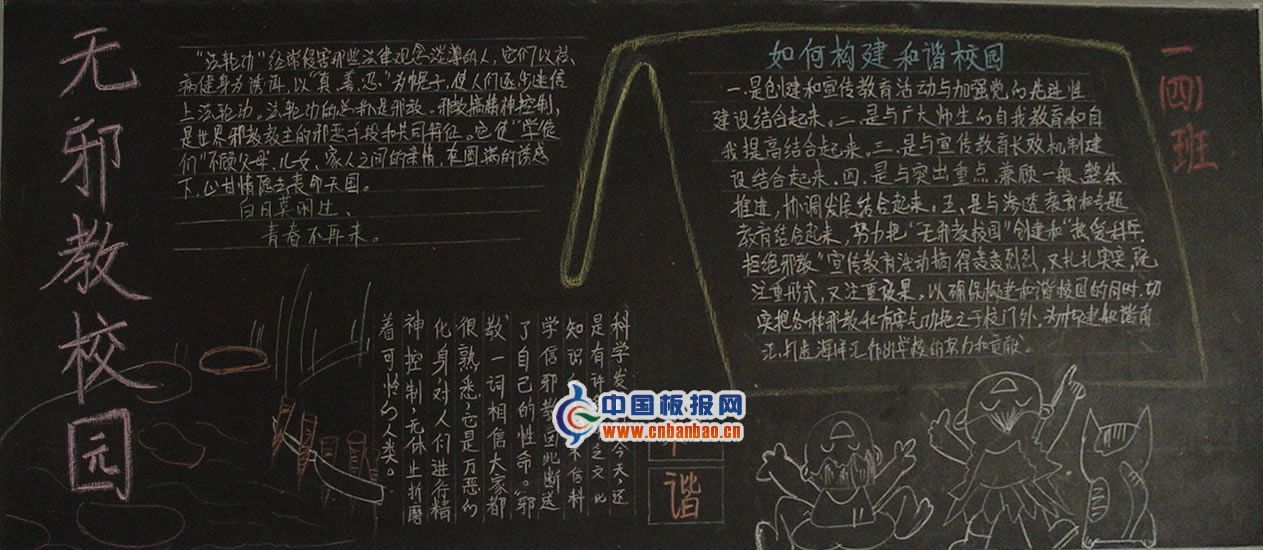 无邪教校园
"法轮功"经常侵害那些法律观念淡薄的人,它们以祛
病健身为诱饵,以"真、善、忍"为幌子,使人们逐步迷信
上法轮功。法轮功的总称是邪教。邪教搞精神控制,
是世界邪教教主的邪恶手段和共同特征。它使"学徒
们"不顾父母、儿女、家人之间的亲情,在圆满的诱惑
下,心甘情愿去丧命天国。
白日莫闲过、
青春不再来。
如何构建和谐校园
一、是创建和宣传教育活动与加强党的先进性
建设结合起来。二、是与广大师生的自我教育和自
我提高结合起来。三、是与宣传教育长效机制建
设结合起来。四、是与突出重点、兼顾一般、整体
推进,协调发展结合起来。五、是与渗透教育和专题
教育结合起来,努力把"无邪教校园"创建和"热爱科学、
拒绝邪教"宣传教育活动搞得轰轰烈烈,又扎扎实实,既
注重形式,又注重效果。以确保构建和谐校园的同时,切
实把各种邪教和有害气功拒之于校门外,为构建和谐
作出学校的努力和贡献。
一(四)班
科学发
今天,还
是有许
之文化
知识
不信科
学信邪教因此断送
了自己的性命。"邪
教"一词相信大家都
很熟悉,它是万恶的
化身,对人们进行精
神控制,无休止折磨
着可怜的人类。
谐
中国板报网
www.cnbanbao.cn